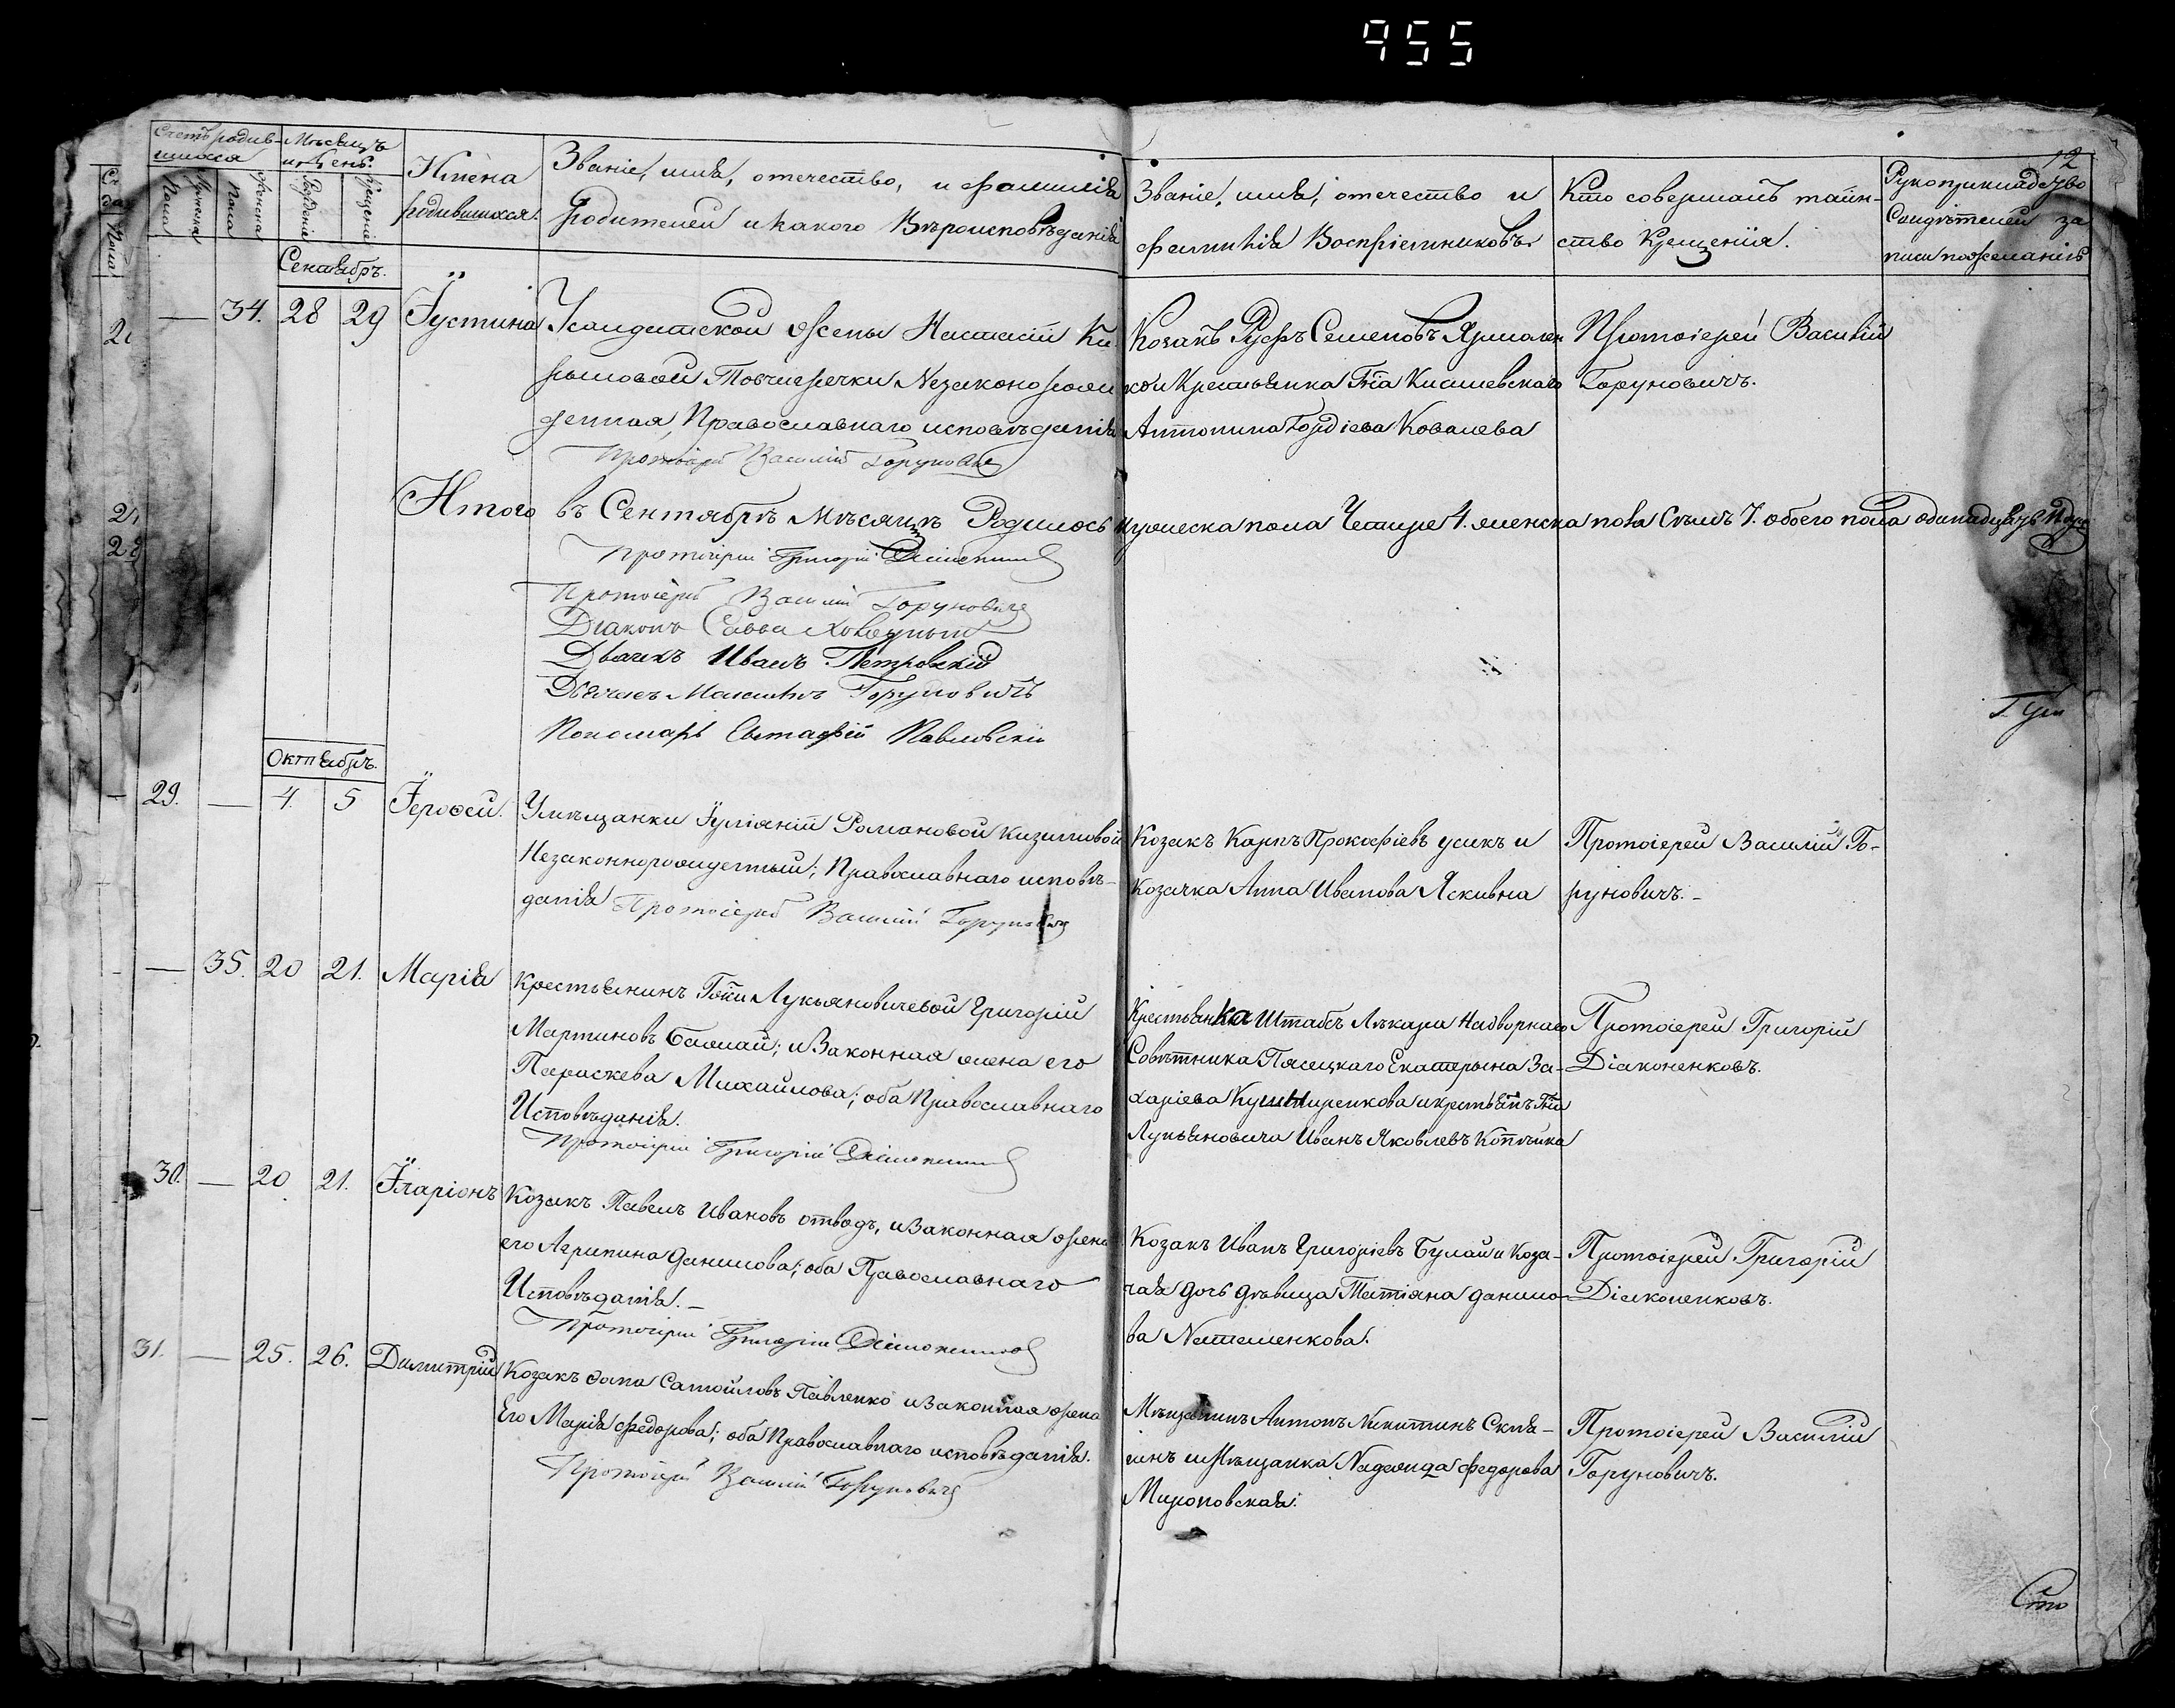 955
12
Счетъ родив-
шихся
Мѣсяцъ
и день.
Мужеска
Пола
Женска
Пола
Рожденіе
Крещеніе
Имена
родившихся.
Званіе, имя, отечество, и фамилія
Родителей и какого Вѣроисповѣданія
Званіе, имя, отечество и
фамилія Воспріемниковъ
Кто совершалъ таин-
ство Крещенія.
Рукоприкладство
Свидѣтелей за
писи по желанію
Сентябрь.
— 34. 28 29 Іустина
У солдатской жены Настасіи Ки-
риловой Незаконорож
денная, Православнаго исповѣданія
Протоіерей Василій Горуновичъ
Козакъ Руфъ Семеновъ Ярмолен
ко и Крестьянка Гжа Кисшевскаго
Антонина Гордіева Ковалева
Протоіерей Василій
Горуновичъ.
Итого въ Сентябрѣ Мѣсяцѣ Родилось мужеска пола Четире 4. женска пола Сѣмъ 7. обоего пола одинадцать
Протоіерей Григорій Діаконенковъ
Протоіерей Василій Горуновичъ
Діаконъ Савва
Дьячекъ Иванъ Петровскій
Дьячекъ Максимъ Горуновичъ
Пономарь Евстафій Павловскій
Октябрь.
29. — 4. 5 Іерофей.
У мѣщанки Іуліаніи Романовой Кизимовой
Незаконнорожденный; Православнаго исповѣ-
данія Протоіерей Василій Горуновичъ
Козакъ Карпъ Прокофіевъ усикъ и
Козачка Анна Иванова Яскивна
Протоіерей Василій Го-
руновичъ.-
— 35. 20 21. Марія
Крестьянинъ Гжи Лукьяновичевой Григорій
Мартиновъ Баглай; и Законная жена его
Параскева Михайлова; оба Православнаго
Исповѣданія.
Протоіерей Григорій Діаконенковъ
Крестьянка Штабъ Лѣкаря Надворнаго
Совѣтника Пясецкаго Екатерына За-
харіева Кушниренкова и крестьянъ Гжи
Лукьяновича Иванъ Яковлевъ
Протоіерей Григорій
Діаконенковъ.
30. — 20 21. Іларіонъ
Козакъ Павелъ Ивановъ отводъ, и Законная жена
его Агрипина Данилова; оба Православнаго
Исповѣданія.-
Протоіерей Григорій Діаконенковъ
Козакъ Иванъ Григоріевъ Булай и Коза-
чая дочь дѣвица Татіана Данило-
ва
Протоіерей Григорій
Діаконенковъ.
31. — 25. 26. Димитрій
Козакъ Фома Самойловъ Павленко и Законная жена
Его Марія Федорова; оба Православнаго исповѣданія.
Протоіерей Василій Горуновичъ
Мѣщанинъ Антонъ Никитинъ Скля-
и Мѣщанка Надежда Федорова
Мироновская.
Протоіерей Василій
Горуновичъ.